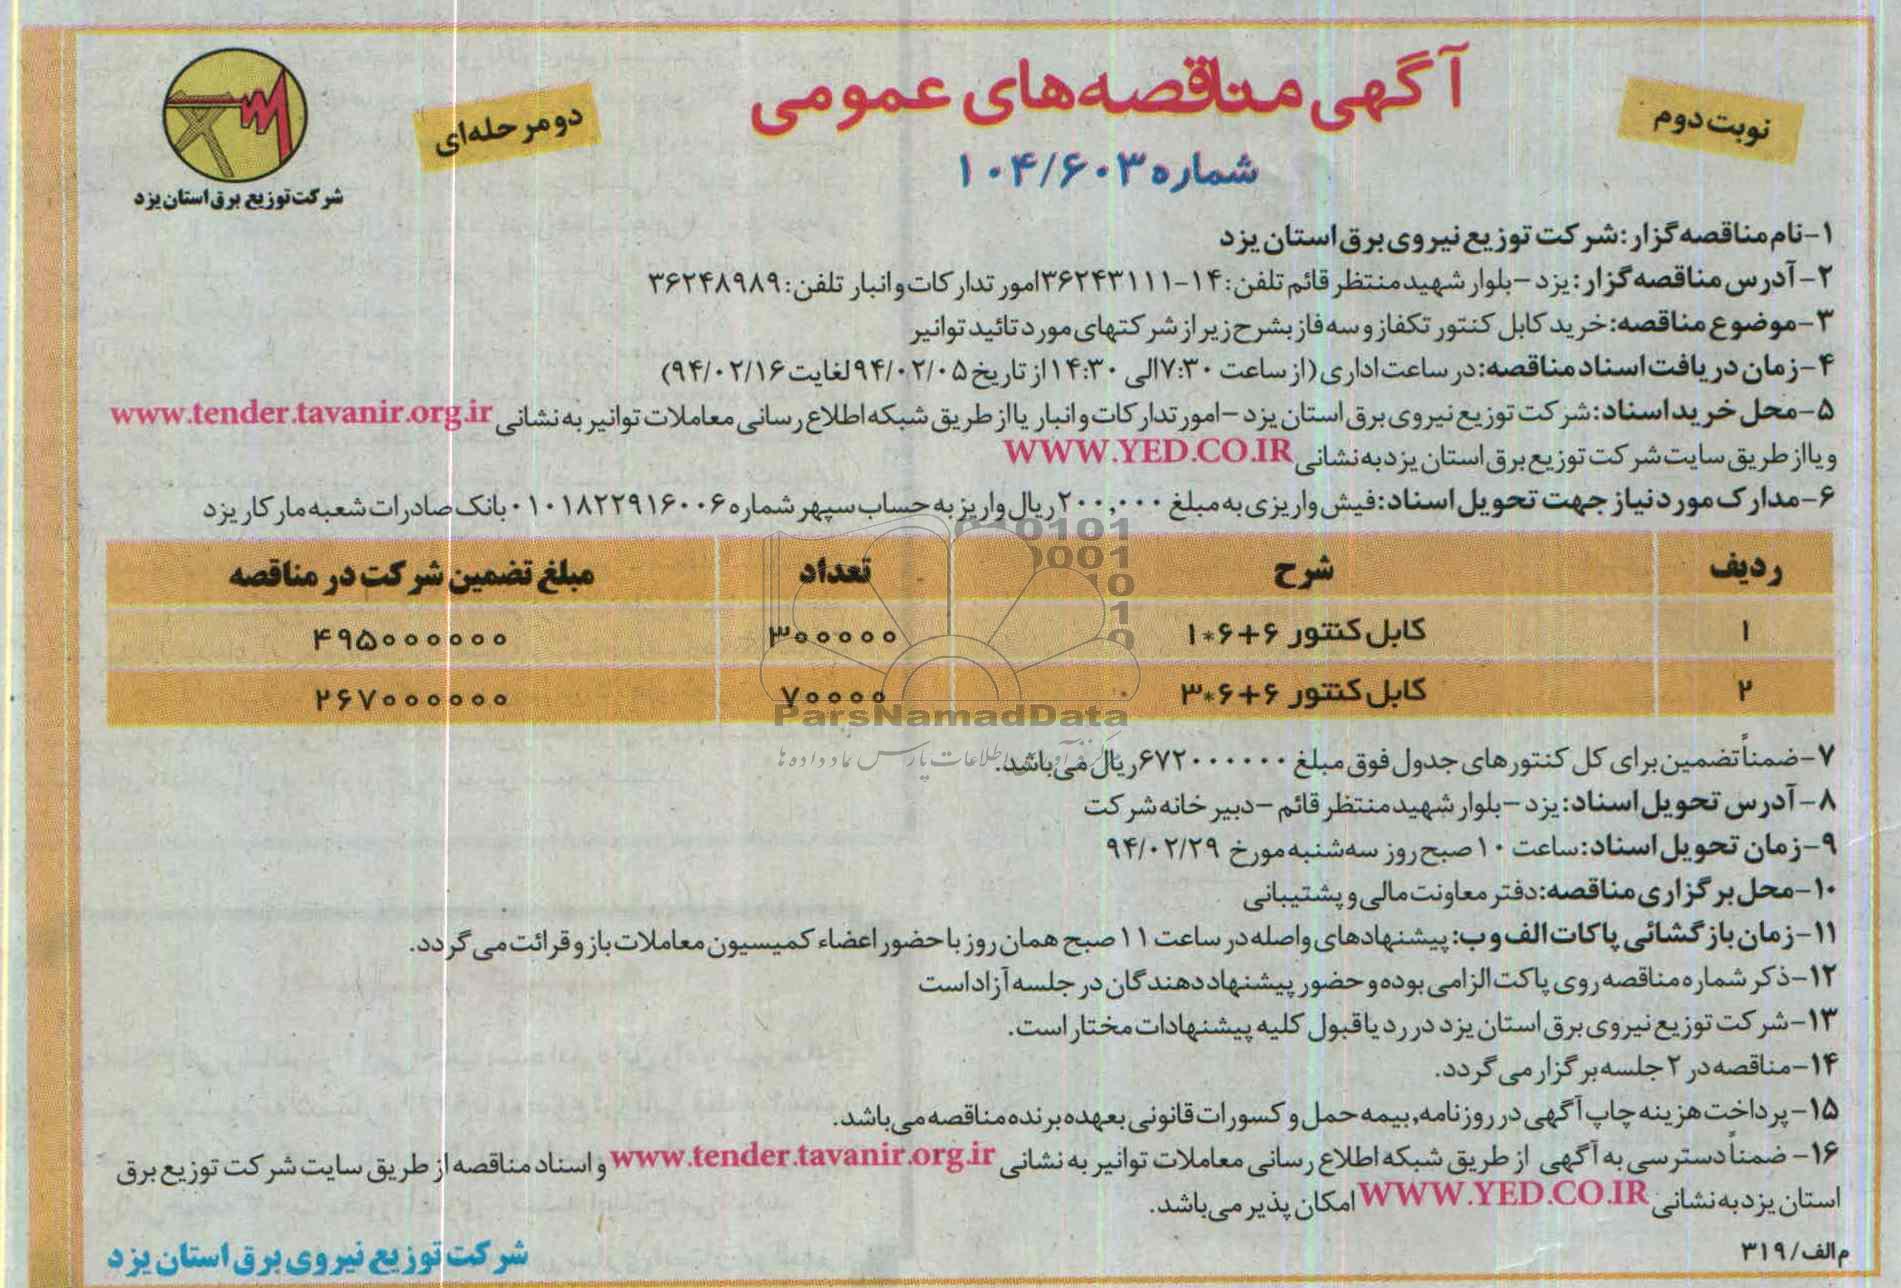 آگهی مناقصه‌های عمومی
نوبت دوم
دو مرحله‌ای
شماره ۱۰۴/۶۰۳
شرکت توزیع برق استان یزد
۱-نام مناقصه گزار: شرکت توزیع نیروی برق استان یزد
۲-آدرس مناقصه گزار: یزد -بلوار شهید منتظر قائم تلفن: ۱۴-۳۶۲۴۳۱۱۱ امور تدارکات و انبار تلفن: ۳۶۲۴۸۹۸۹
۳-موضوع مناقصه: خرید کابل کنتور تکفاز و سه فاز بشرح زیر از شرکتهای مورد تائید توانیر
۴-زمان دریافت اسناد مناقصه: در ساعت اداری (از ساعت ۷:۳۰ الی ۱۴:۳۰ از تاریخ ۹۴/۰۲/۰۵ لغایت ۹۴/۰۲/۱۶)
۵-محل خرید اسناد: شرکت توزیع نیروی برق استان یزد -امور تدارکات و انبار یا از طریق شبکه اطلاع رسانی معاملات توانیر به نشانی www.tender.tavanir.org.ir
و یا از طریق سایت شرکت توزیع برق استان یزد به نشانی WWW.YED.CO.IR
۶-مدارک مورد نیاز جهت تحویل اسناد: فیش واریزی به مبلغ ۲۰۰,۰۰۰ ریال واریز به حساب سپهر شماره ۰۱۰۱۸۲۲۹۱۶۰۰۶ بانک صادرات شعبه مارکار یزد
ردیف شرح تعداد مبلغ تضمین شرکت در مناقصه
۱ کابل کنتور ۶+۶*۱ ۳۰۰۰۰۰ ۴۹۵۰۰۰۰۰۰
۲ کابل کنتور ۶+۶*۳ ۷۰۰۰۰ ۲۶۷۰۰۰۰۰۰
ParsNamadData
۷-ضمناً تضمین برای کل کنتورهای جدول فوق مبلغ ۶۷۲۰۰۰۰۰۰ ریال می باشد.
۸-آدرس تحویل اسناد: یزد -بلوار شهید منتظر قائم -دبیر خانه شرکت
۹-زمان تحویل اسناد: ساعت ۱۰ صبح روز سه شنبه مورخ ۹۴/۰۲/۲۹
۱۰-محل برگزاری مناقصه: دفتر معاونت مالی و پشتیبانی
۱۱-زمان بازگشائی پاکات الف و ب: پیشنهادهای واصله در ساعت ۱۱ صبح همان روز با حضور اعضاء کمیسیون معاملات باز و قرائت می گردد.
۱۲-ذکر شماره مناقصه روی پاکت الزامی بوده و حضور پیشنهاد دهندگان در جلسه آزاد است
۱۳-شرکت توزیع نیروی برق استان یزد در رد یا قبول کلیه پیشنهادات مختار است.
۱۴-مناقصه در ۲ جلسه برگزار می گردد.
۱۵-پرداخت هزینه چاپ آگهی در روزنامه، بیمه حمل و کسورات قانونی بعهده برنده مناقصه می باشد.
۱۶- ضمناً دسترسی به آگهی از طریق شبکه اطلاع رسانی معاملات توانیر به نشانی www.tender.tavanir.org.ir و اسناد مناقصه از طریق سایت شرکت توزیع برق
استان یزد به نشانی WWW.YED.CO.IR امکان پذیر می باشد.
م الف/۳۱۹
شرکت توزیع نیروی برق استان یزد